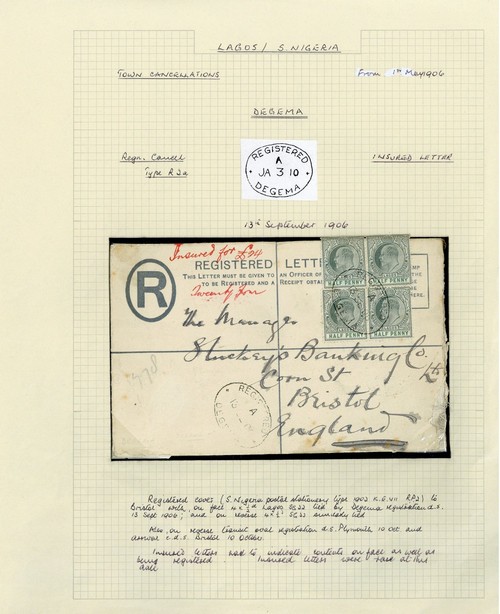 LAGOS / S. NIGERIA
TOWN CANCELLATIONS
From 1st May 1906
DEGEMA
Regn. Cancel
Type R2a
REGISTERED
A
JA 3 10
DEGEMA
INSURED LETTER
13th September 1906
Insured for £24
Twenty four
REGISTERED LETTER
THIS LETTER MUST BE GIVEN TO AN OFFICER OF
TO BE REGISTERED AND A RECEIPT OBTAINED
R
HALF PENNY HALF PENNY
HALF PENNY HALF PENNY
The Manager
Stuckey's Banking Co.
Ltd
Corn St
Bristol
England
378
REGISTERED
A
DEGEMA
Registered cover (S. Nigeria postal stationery type 1902 K.E.VII RP2) to
Bristol with, on face 4 x ½d Lagos tied by Degema registration d.s.
13 Sept 1906; and on reverse 4 x ½ similarly tied
Also, on reverse transit oval registration d.s. Plymouth 10 Oct and
arrival d.s. Bristol 10 October.
Insured letters had to indicate contents on face as well as
being registered. Insured letters were rare at this
date